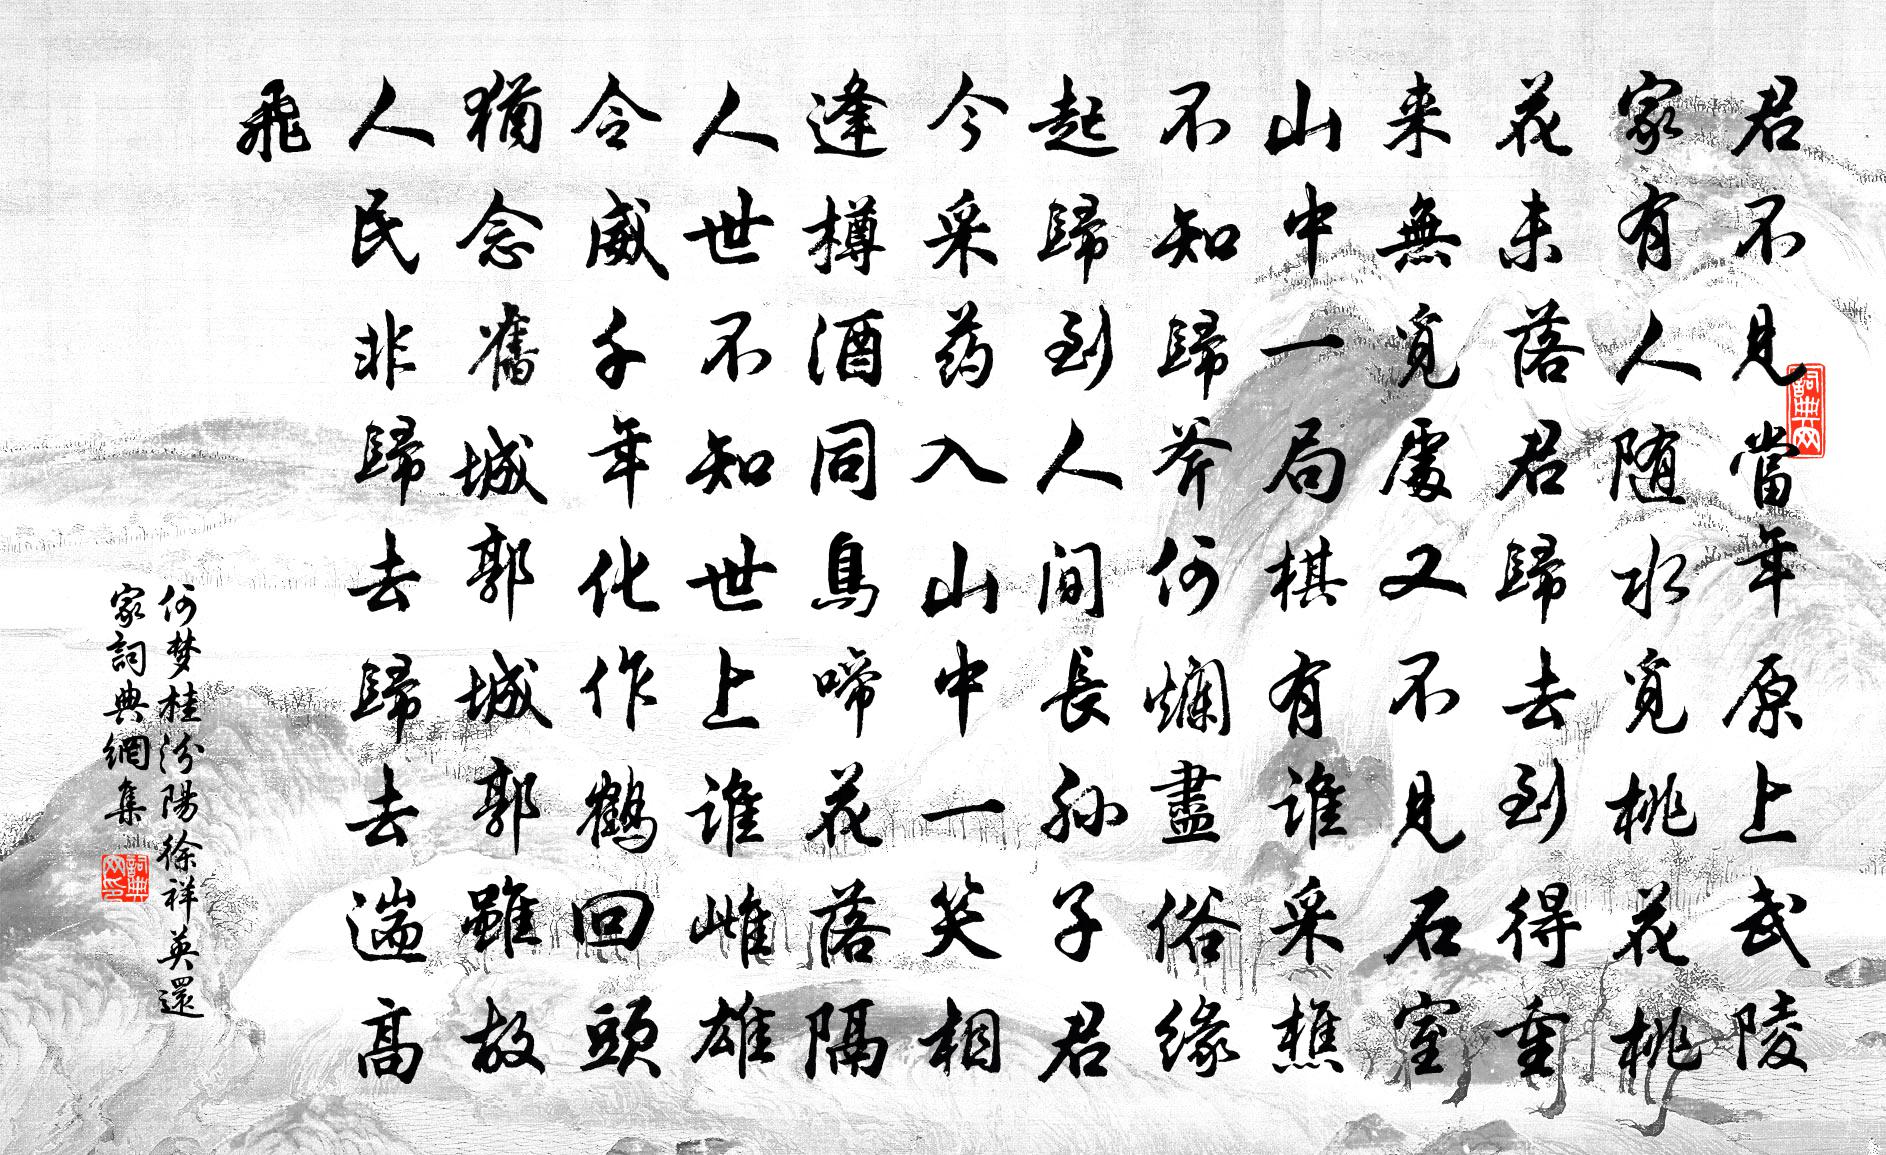 君不見當年原上武陵
家有人随水覓桃花桃
花未落君歸去到得重
来無覓處又不見石室
山中一局棋有谁采樵
不知歸斧何爛盡俗缘
起歸到人间長孙子君
今采药入山中一笑相
逢樽酒同鳥啼花落隔
人世不知世上谁雌雄
令威千年化作鹤回頭
猶念舊城郭城郭雖故
人民非歸去歸去遄高
飛
何梦桂汾陽徐祥英還
家詞典網集
詞典网